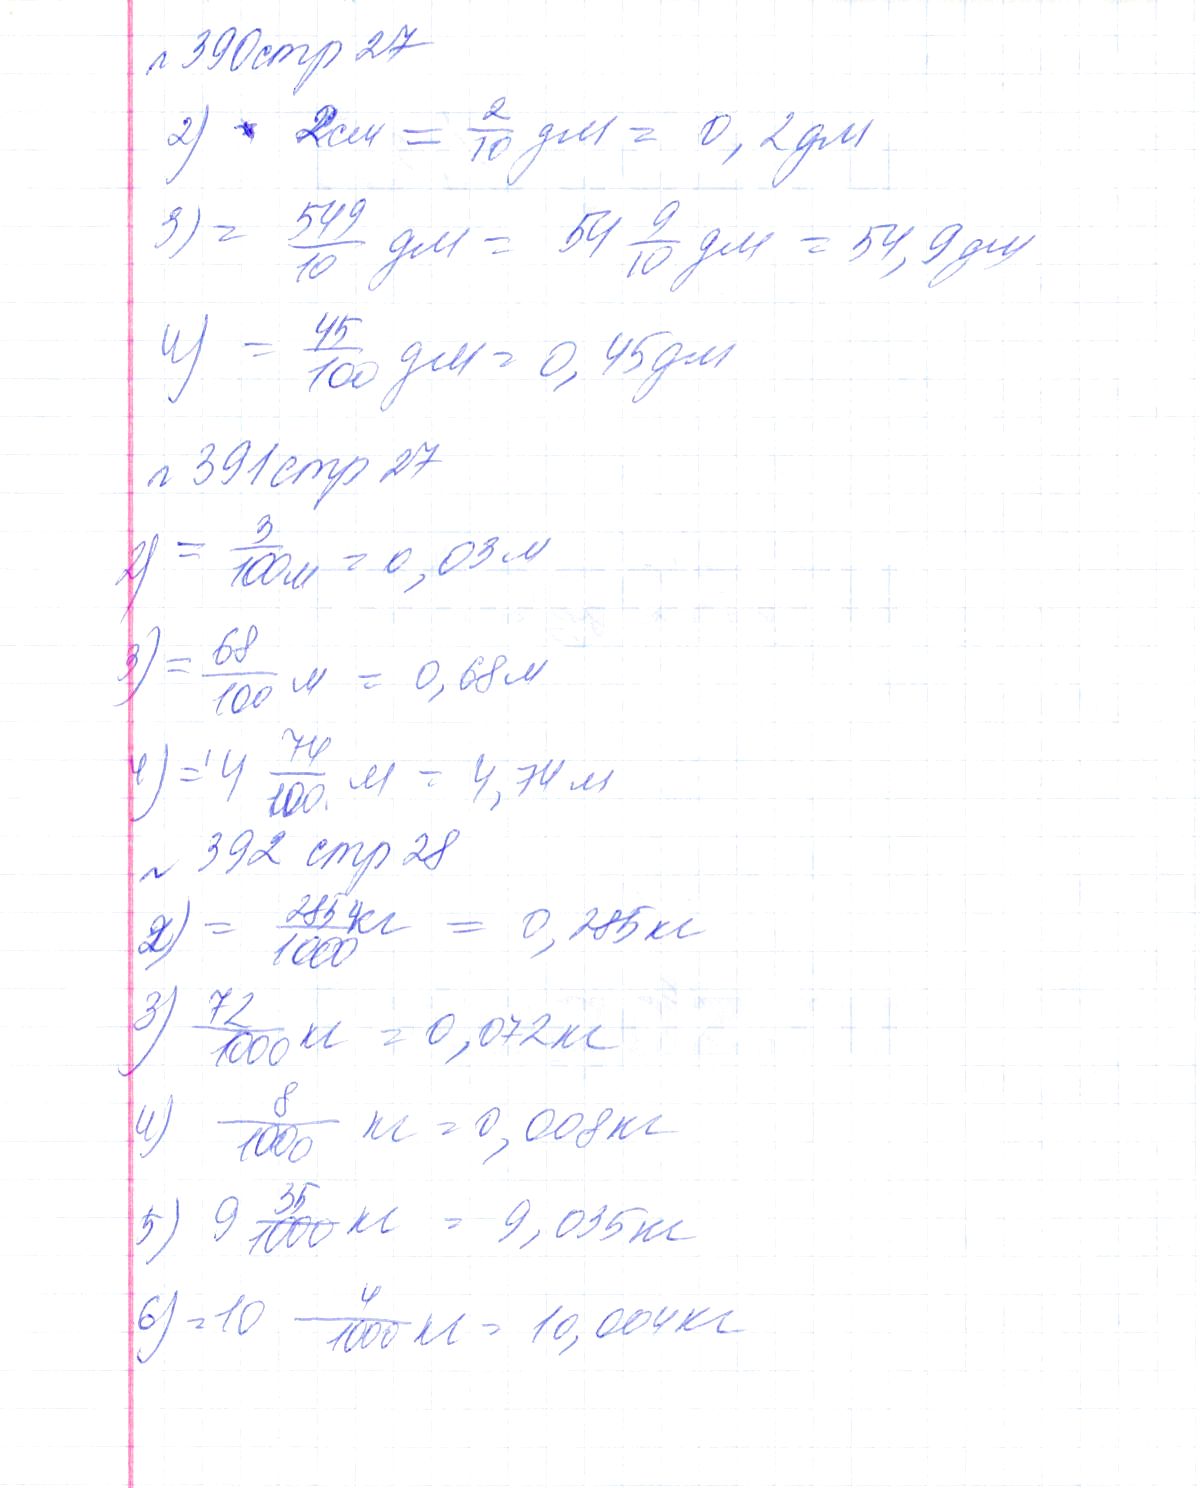 № 390 стр 27
2) 2см = 2/10 дм = 0,2дм
3) = 549/10 дм = 54 9/10 дм = 54,9дм
4) = 45/100 дм = 0,45дм
№ 391 стр 27
2) = 3/100 м = 0,03м
3) = 68/100 м = 0,68м
4) = 4 74/100 м = 4,74м
№ 392 стр 28
2) = 285/1000 кг = 0,285кг
3) 72/1000 кг = 0,072кг
4) 8/1000 кг = 0,008кг
5) 9 35/1000 кг = 9,035кг
6) = 10 4/1000 кг = 10,004кг